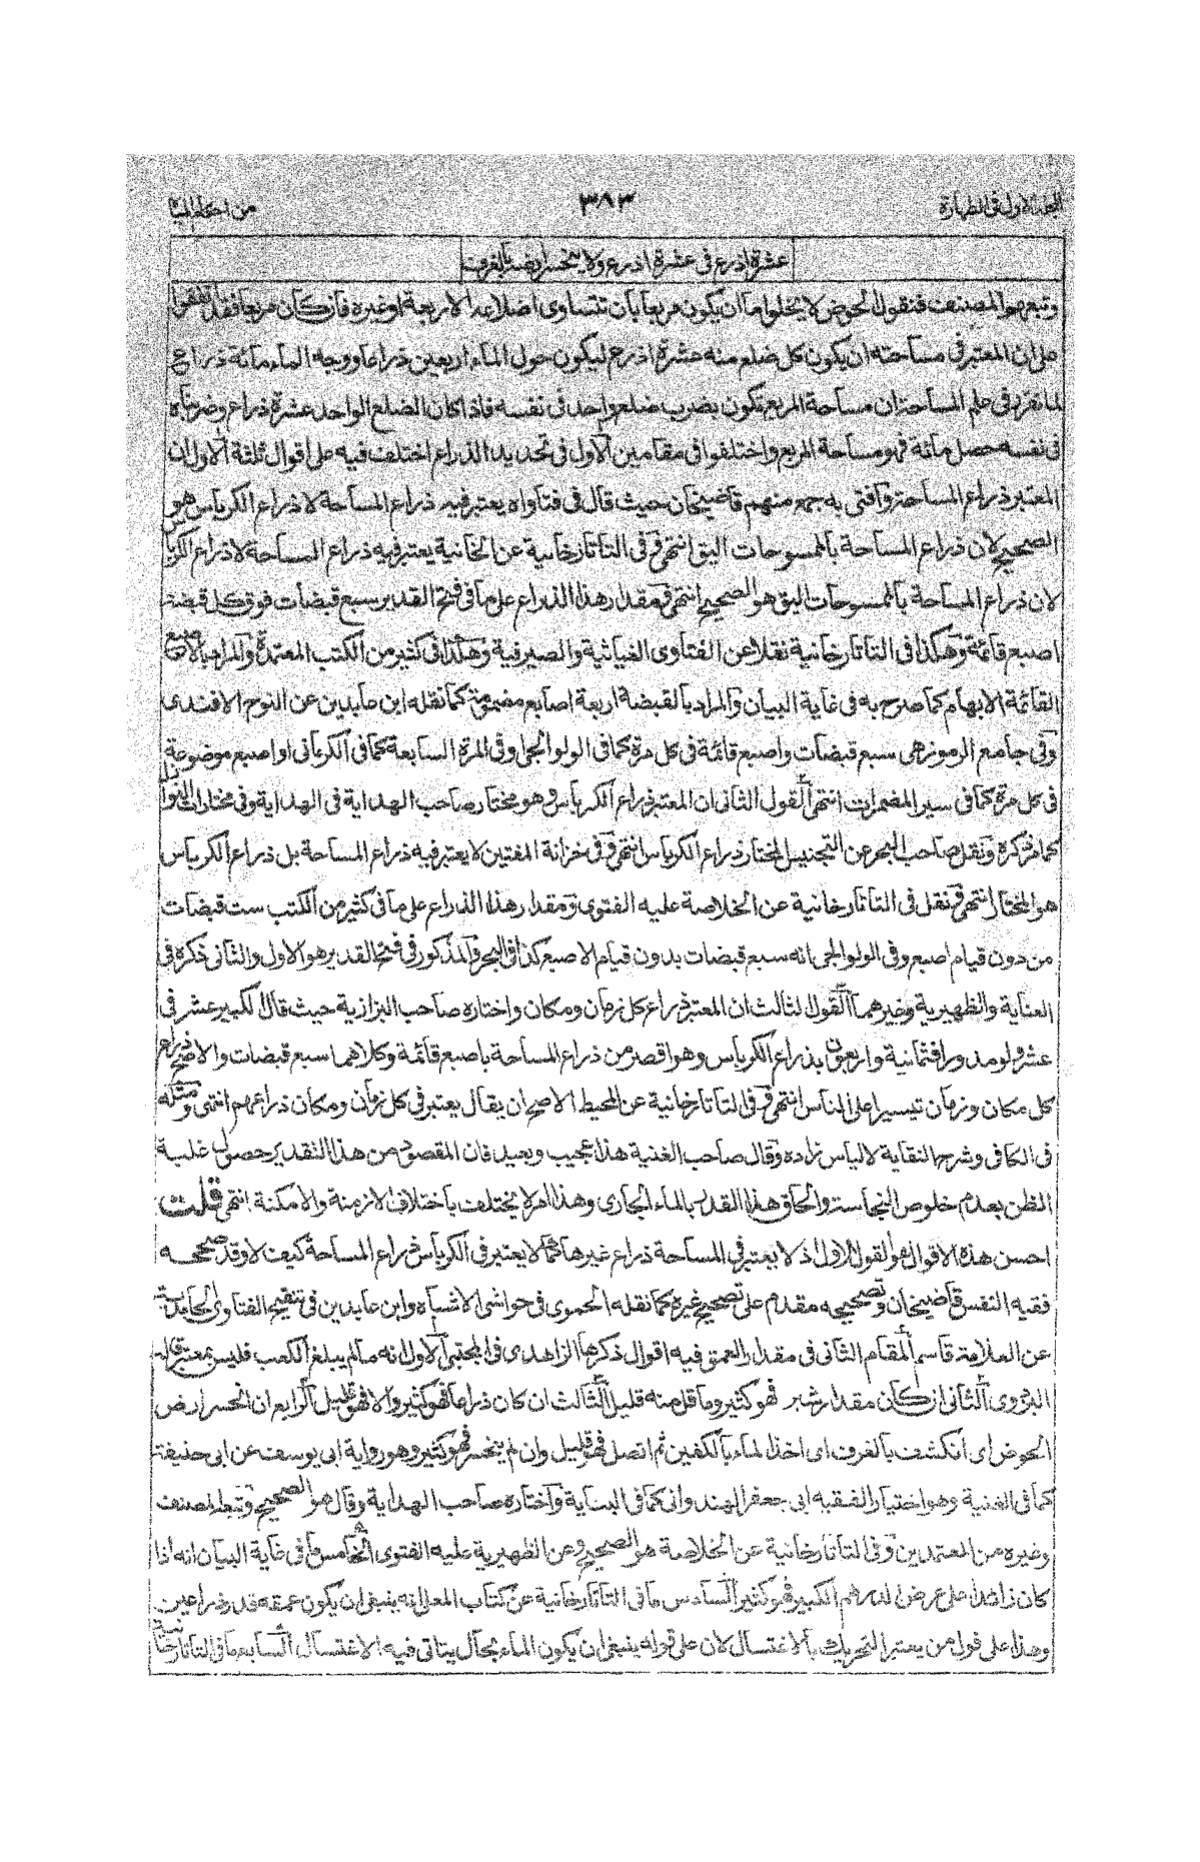 المجلد الاول فى الطهارة ٣٨٣ من احكام المياه
عشرة اذرع فى عشرة اذرع ولا ينحسر ارضه بالغرف
وتبعهم المصنف فنقول الحوض لا يخلو اما ان يكون مربعا بان تتساوى اضلاعه الاربعة او غيره فان كان مربعا فقد اتفقوا
على ان المعتبر فى مساحته ان يكون كل ضلع منه عشرة اذرع ليكون حول الماء اربعين ذراعا ووجه الماء مائة ذراع
لما تقرر فى علم المساحة ان مساحة المربع تكون بضرب ضلع واحد فى نفسه فاذا كان الضلع الواحد عشرة ذراع وضربناه
فى نفسه حصل مائة فهو مساحة المربع واختلفوا فى مقامين الاول فى تحديد الذراع اختلف فيه على اقوال ثلثة الاول ان
المعتبر ذراع المساحة وافتى به جمع منهم قاضيخان حيث قال فى فتاواه يعتبر فيه ذراع المساحة لا ذراع الكرباس هو
الصحيح لان ذراع المساحة بالممسوحات اليق انتهى وفى التاتارخانية عن الخانية يعتبر فيه ذراع المساحة لا ذراع الكرباس
لان ذراع المساحة بالممسوحات اليق هو الصحيح انتهى ومقدار هذا الذراع على ما فى فتح القدير سبع قبضات فوق كل قبضة
اصبع قائمة وهكذا فى التاتارخانية نقلا عن الفتاوى الغياثية والصيرفية وهكذا فى كثير من الكتب المعتمدة والمراد بالاصبع
القائمة الابهام كما صرح به فى غاية البيان والمراد بالقبضة اربعة اصابع مضمومة كما نقله ابن عابدين عن النوح الافندى
وفى جامع الرموز هى سبع قبضات واصبع قائمة فى كل مرة كما فى الولوالجى او فى المرة السابعة كما فى الكرمانى او اصبع موضوعة
فى كل مرة كما فى سير المضمرات انتهى القول الثانى ان المعتبر ذراع الكرباس وهو مختار صاحب الهداية فى الهداية وفى مختارات النوازل
كما مر ذكره ونقل صاحب البحر عن التجنيس المختار ذراع الكرباس انتهى وفى خزانة المفتين لا يعتبر فيه ذراع المساحة بل ذراع الكرباس
هو المختار انتهى ونقل فى التاتارخانية عن الخلاصة عليه الفتوى ومقدار هذا الذراع على ما فى كثير من الكتب ست قبضات
من دون قيام اصبع وفى الولوالجى انه سبع قبضات بدون قيام الاصبع كذا فى البحر والمذكور فى فتح القدير هو الاول والثانى ذكره فى
العناية والظهيرية وغيرهما القول الثالث ان المعتبر ذراع كل زمان ومكان واختاره صاحب البزازية حيث قال الكبير عشر فى
عشر ولو مدورا فثمانية واربعون بذراع الكرباس وهو اقصر من ذراع المساحة باصبع قائمة وكلاهما سبع قبضات والاصح ذراع
كل مكان وزمان تيسيرا على الناس انتهى وفى التاتارخانية عن المحيط الاصح ان يقال يعتبر فى كل زمان ومكان ذراعهم انتهى ومثله
فى الكافى وشرح النقاية لالياس زاده وقال صاحب الغنية هذا عجيب وبعيد فان المقصود من هذا التقدير حصول غلبة
الظن بعدم خلوص النجاسة والحاق هذا القدر بالماء الجارى وهذا امر لا يختلف باختلاف الازمنة والامكنة انتهى قلت
احسن هذه الاقوال هو القول الاول اذ لا يعتبر فى المساحة ذراع غيرها كما لا يعتبر فى الكرباس ذراع المساحة كيف لا وقد صححه
فقيه النفس قاضيخان وتصحيحه مقدم على تصحيح غيره كما نقله الحموى فى حواشى الاشباه وابن عابدين فى تنقيح الفتاوى الحامدية
عن العلامة قاسم المقام الثانى فى مقدار العمق فيه اقوال ذكرها الزاهدى فى المجتبى الاول انه مالم يبلغ الكعب فليس بمعتبر قاله
البزدوى الثانى ان كان مقدار شبر فهو كثير وما قل منه قليل الثالث ان كان ذراعا فهو كثير والا فهو قليل الرابع ان انحسر ارض
الحوض اى انكشف بالغرف اى اخذ الماء بالكفين ثم اتصل فهو قليل وان لم ينحسر فهو كثير وهو رواية ابى يوسف عن ابى حنيفة
كما فى الغنية وهو اختيار الفقيه ابى جعفر الهندوانى كما فى البناية واختاره صاحب الهداية وقال هو الصحيح وتبعه المصنف
وغيره من المعتمدين وفى التاتارخانية عن الخلاصة هو الصحيح وعن الظهيرية عليه الفتوى الخامس ما فى غاية البيان انه اذا
كان زائدا على عرض الدرهم الكبير فهو كثير السادس ما فى التاتارخانية عن كتاب المعلى انه ينبغى ان يكون عمقه قدر ذراعين
وهذا على قول من يعتبر التحريك بالاغتسال لان على قوله ينبغى ان يكون الماء بحال يتاتى فيه الاغتسال السابع ما فى التاتارخانية